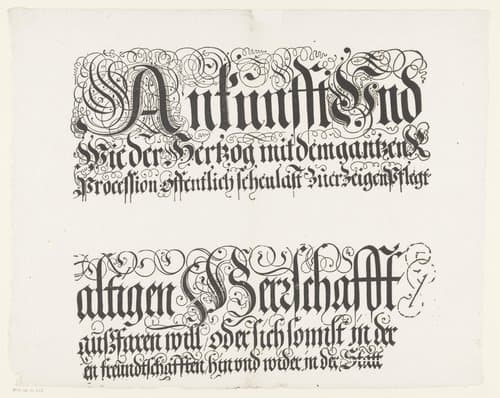 Ankunfft Und
Wie der Hertzog mit dem gantzen R
Procession offentlich sehen last Zuer Zeigen Pflegt
altigen Herrschafft
außfaren will, oder sich sonnst in der
en freundtschafften hin und wider in der Statt